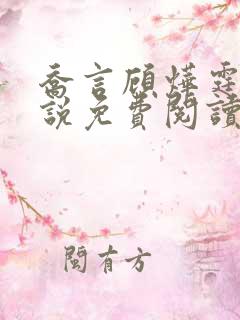 喬言顧燁霆
說免費閱讀
閩有方